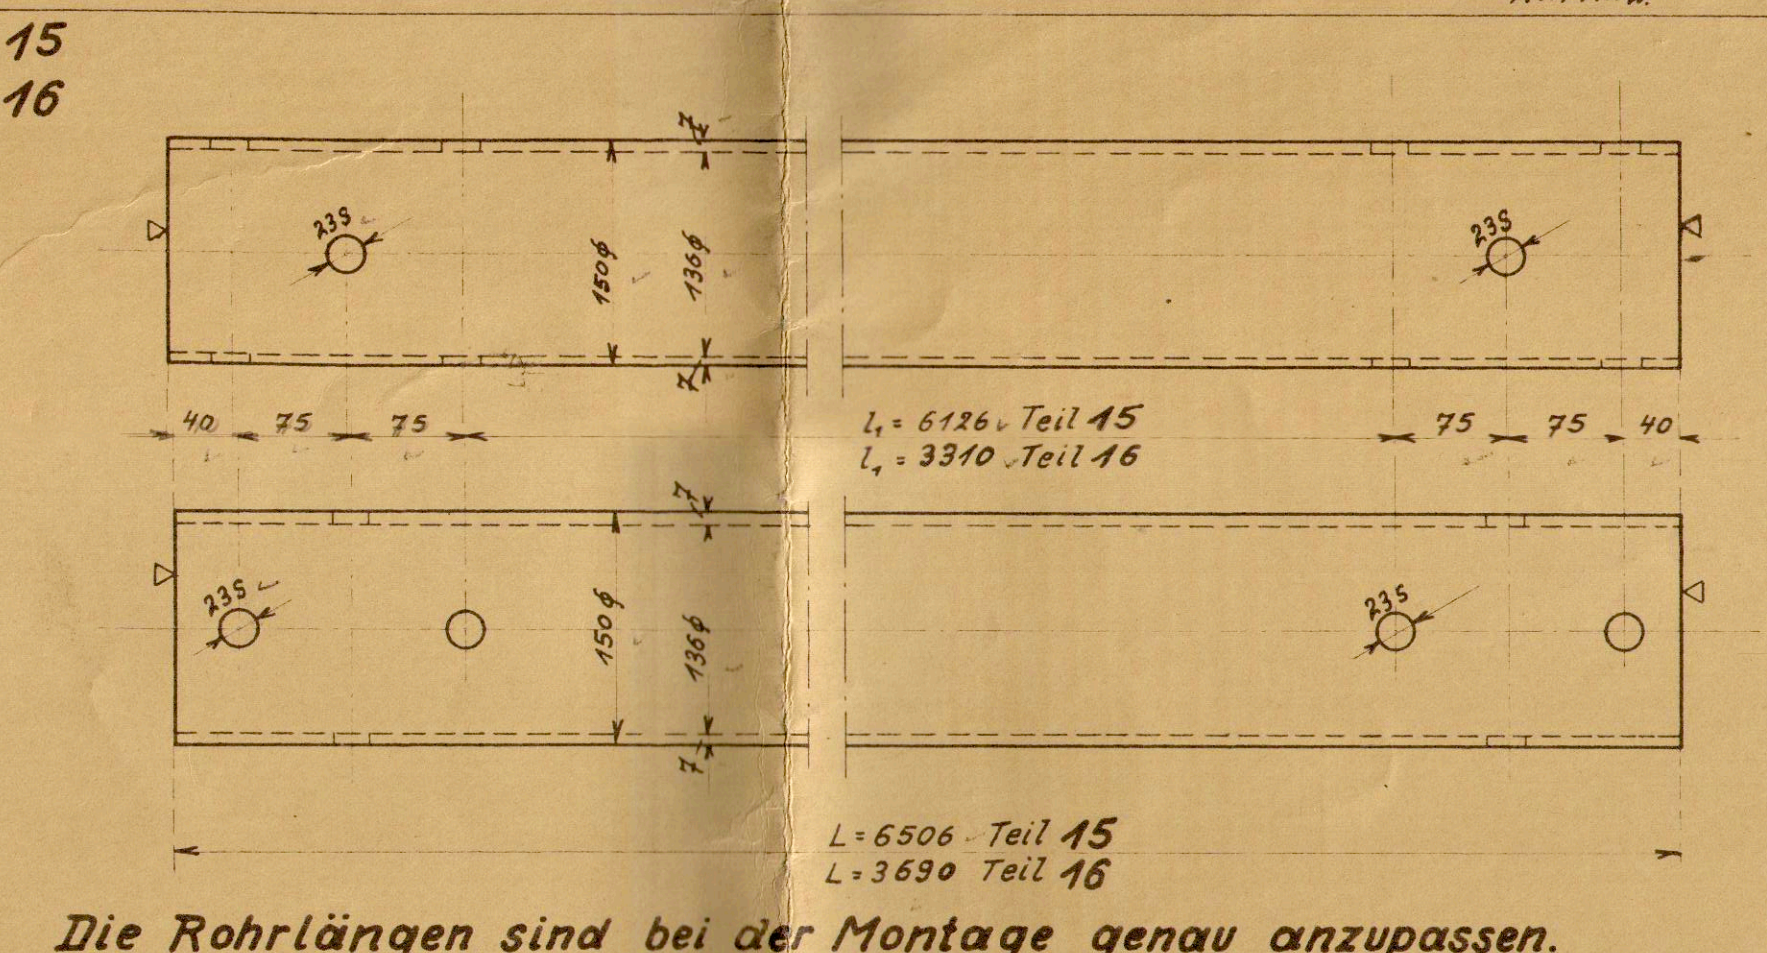 15
16
7
23S
150φ
136φ
23S
7
40 75 75
l₁ = 6126 Teil 15
75 75 40
l₁ = 3310 Teil 16
7
23S
150φ
136φ
23S
7
L = 6506 Teil 15
L = 3690 Teil 16
Die Rohrlängen sind bei der Montage genau anzupassen.